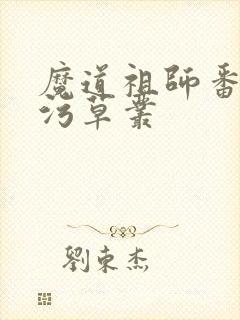 魔道祖師番
污草叢
劉東杰